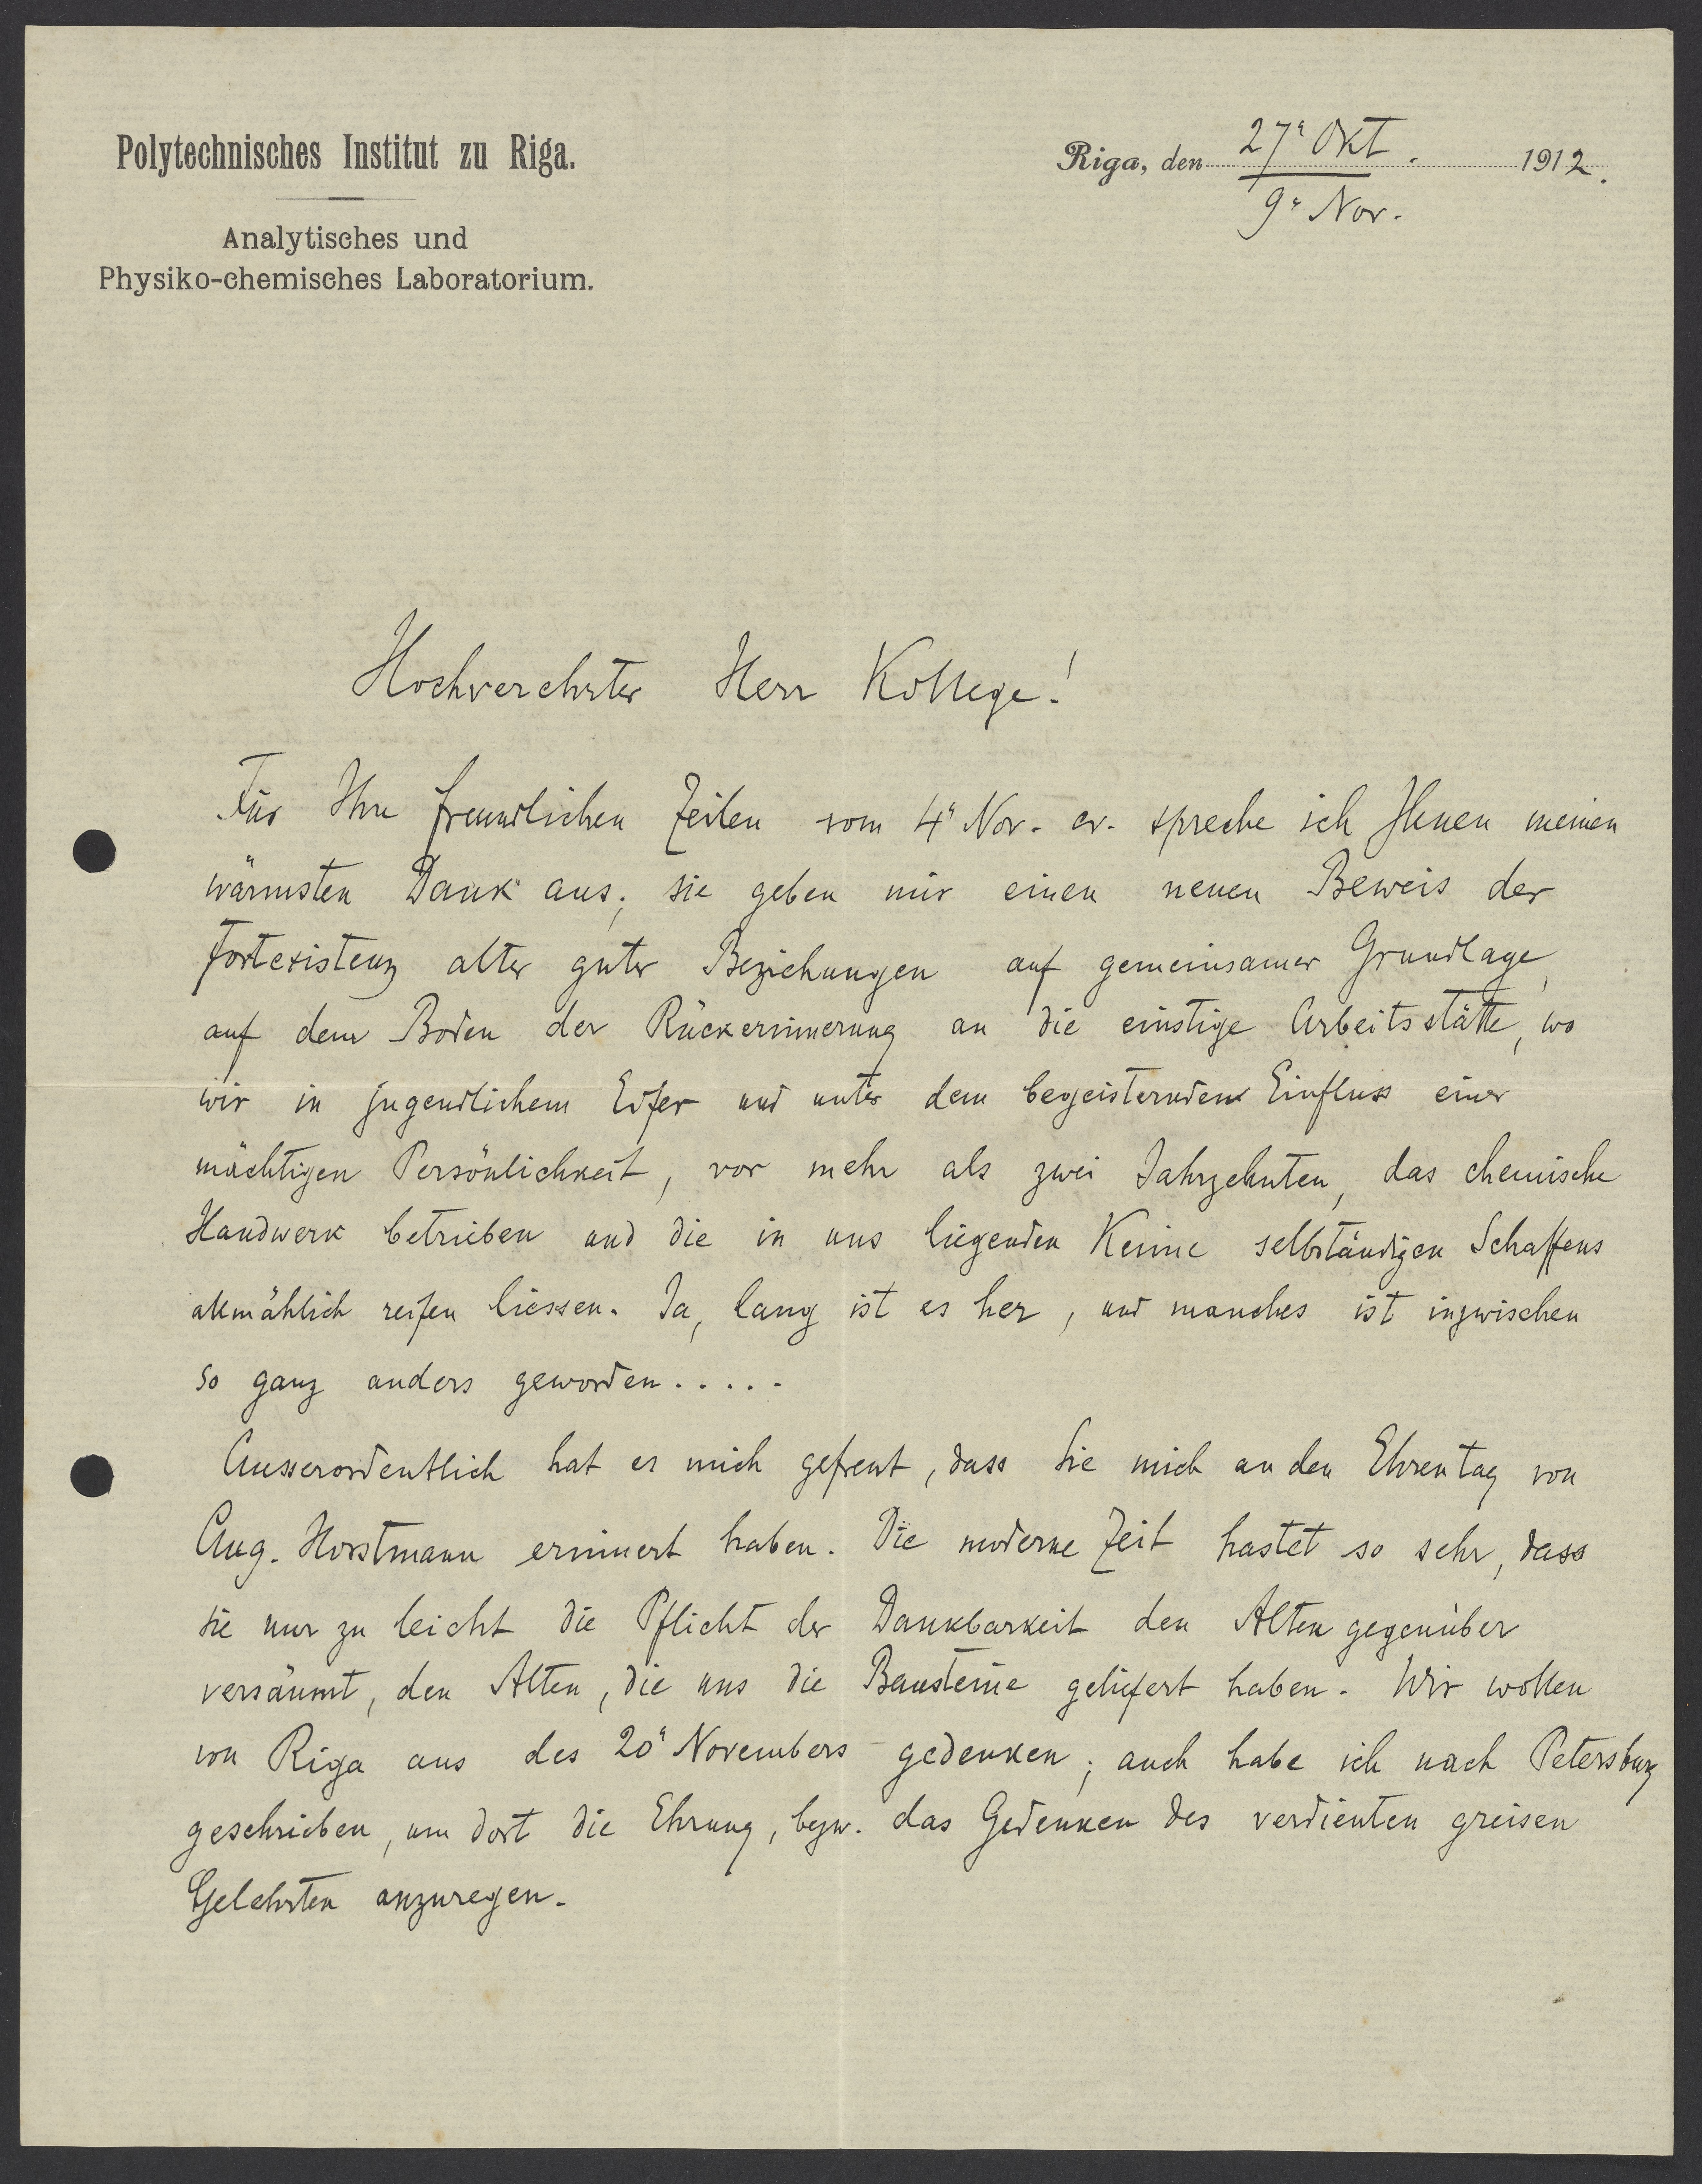 Polytechnisches Institut zu Riga.
Analytisches und
Physiko-chemisches Laboratorium.
Riga, den 27ª Okt. 1912.
9ª Nov.
Hochverehrter Herr Kollege!
Für Ihre freundlichen Zeilen vom 4ª Nov. cr. spreche ich Ihnen meinen
wärmsten Dank aus; sie geben mir einen neuen Beweis der
Fortexistenz alter guter Beziehungen auf gemeinsamer Grundlage,
auf dem Boden der Rückerinnerung an die einstige Arbeitsstätte, wo
wir in jugendlichem Eifer und unter dem begeisternden Einfluss einer
mächtigen Persönlichkeit, vor mehr als zwei Jahrzehnten, das chemische
Handwerk betrieben und die in uns liegenden Keime selbständigen Schaffens
allmählich reifen liessen. Ja, lang ist es her, und manches ist inzwischen
so ganz anders geworden.....
Ausserordentlich hat es mich gefreut, dass Sie mich an den Ehrentag von
Aug. Horstmann erinnert haben. Die moderne Zeit hastet so sehr, dass
sie nur zu leicht die Pflicht der Dankbarkeit den Alten gegenüber
versäumt, den Alten, die uns die Bausteine geliefert haben. Wir wollen
von Riga aus des 20ª Novembers gedenken; auch habe ich nach Petersburg
geschrieben, um dort die Ehrung, bezw. das Gedenken des verdienten greisen
Gelehrten anzuregen.